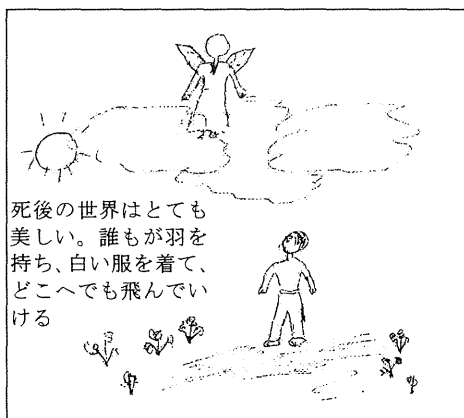 死後の世界はとても
美しい。誰もが羽を
持ち、白い服を着て、
どこへでも飛んでい
ける